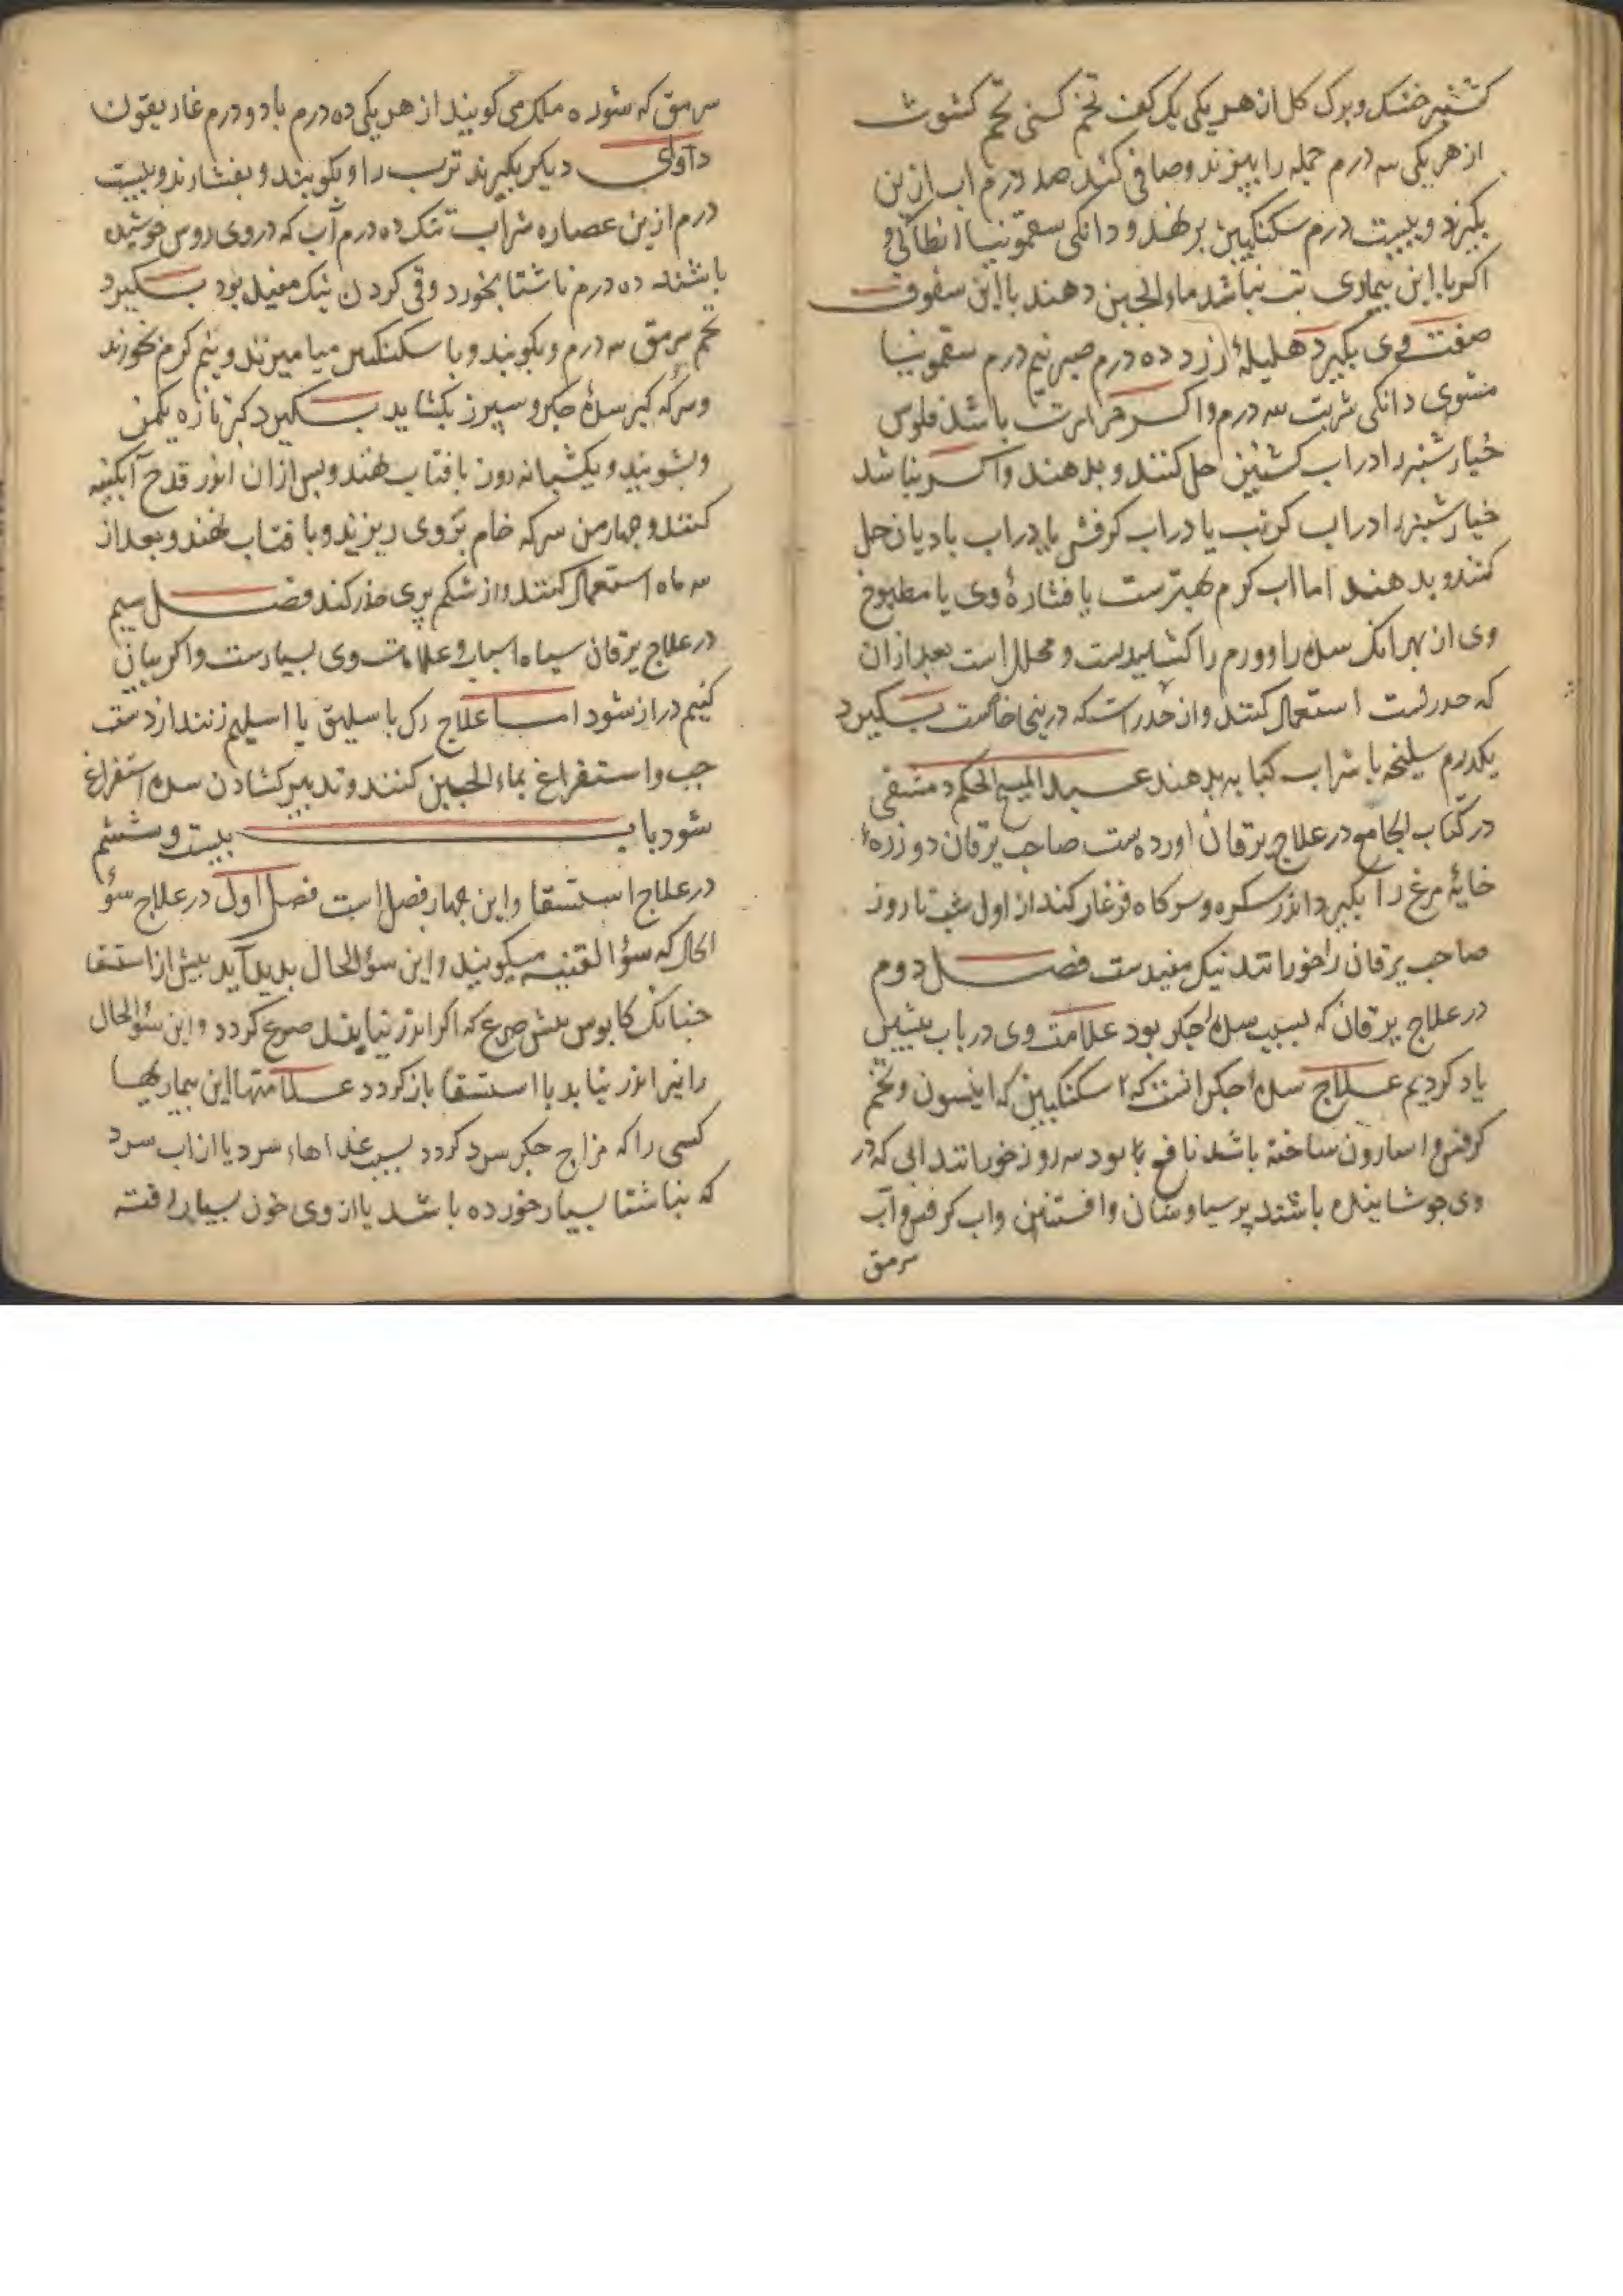 کشنیز خشک و برک کل از هر یکی یک کف تخم کسنی تخم کشوث
از هر یکی سه درم جمله را بپزند و صافی کنند صد درم اب ازین
بکیرند و بیست درم سکنکبین برنهند و دانکی سقمونیا انطاکی و
اکر با این بیماری تب نباشد ماء الجبن دهند با این سفوف
صفت وی بکیرد هلیلهٔ زرد ده درم صبر نیم درم سقمونیا
مشوی دانکی شربت سه درم و اکر حرارت باشد فلوس
خیارشنبر را در اب کشنیز حل کنند و بدهند و اکر نباشد
خیارشنبر را در اب کرنب یا در اب کرفس یا در اب بادیان حل
کنند و بدهند اما اب کرم بهترست یا فشارهٔ وی یا مطبوخ
وی از بهر انک سده را و ورم را کشایندست و محلل است بعد ازان
که حدرست استعمال کنند و ان حدر است که در بنی خاصت بکیرد
یکدرم سلیخه با شراب کبابه بدهند عبد المسیح الحکم دمشقی
در کتاب الجامع در علاج یرقان اورده ست صاحب یرقان دو زردهٔ
خایهٔ مرغ را بکیرد اندر سکره و سرکاه فرغار کند از اول شب تا روز
صاحب یرقان را خورانند نیک مفیدست فصل دوم
در علاج یرقان که بسبب سدهٔ جکر بود علامت وی در باب پیشین
یاد کردیم علاج سدهٔ جکر انست که سکنکبین که انیسون و تخم
کرفس و اسارون ساخته باشد نافع بود سه روز خورانند ابی که در
وی جوشانیده باشند پرسیاوشان و افسنتین و اب کرفس و آب
سرمق
سرمق که شوره ملک می کویند از هر یکی ده درم با دو درم غاریقون
داوای دیکر بکیرند ترب را و بکوبند و بفشارند و بیست
درم ازین عصاره شراب تنک ده درم آب که در وی روس جوشیده
باشند ده درم ناشتا بخورد و قی کردن نیک مفید بود بکیرد
تخم سرمق سه درم و بکوبند و با سکنکبین میامیزند و نیم کرم بخورند
و سرکه کبر سدهٔ جکر و سپرز بکشاید بکیرد کبر تازه یکمن
و بشویند و یکشبانه روز بافتاب نهند و پس ازان اندر قدح آبکینه
کنند و چهار من سرکه خام بروی ریزند و بافتاب نهند و بعد از
سه ماه استعمال کنند و از شکم پری حذر کند فصل سیم
در علاج یرقان سیاه اسباب و علامات وی بسیارست و اکر بیان
کنیم دراز شود اما علاج رک باسلیق یا اسیلیم زنند از دست
چپ و استفراغ بماء الجبن کنند و تدبیر کشادن سده استفراغ
شود باب بیست و ششم
در علاج استسقا و این چهار فصل است فصل اول در علاج سؤ
الحال که سؤ القنیه میکویند و این سؤ الحال بدید آید پیش از استسقا
چنانک کابوس پیش صرع که اکر اندر نیابند صرع کردد و این سؤ الحال
را نیز اندر نیابد با استسقا بازکردد علامتها این بیماریها
کسی را که مزاج جکر سرد کردد بسبب غذاهاء سرد یا از اب سرد
که بناشتا بسیار خورده باشد یا از وی خون بسیار رفته